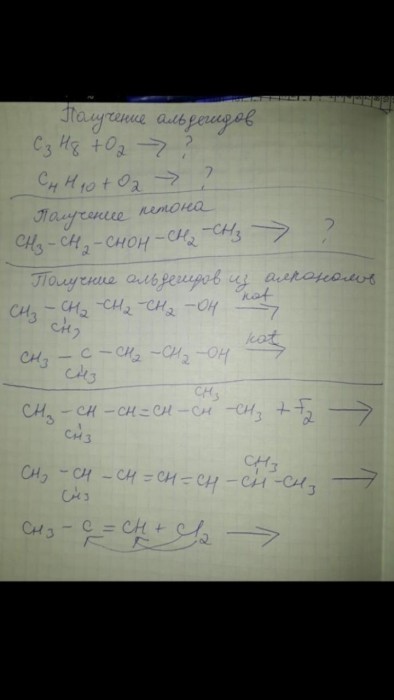 Получение альдегидов
C3H8 + O2 → ?
C4H10 + O2 → ?
Получение кетона
CH3-CH2-CHOH-CH2-CH3 → ?
Получние альдегидов из алканолов
CH3-CH2-CH2-CH2-OH kat →
CH3
CH3-C-CH2-CH2-OH kat →
CH3
CH3
CH3-CH-CH=CH-CH-CH3 + F2 →
CH3
CH3
CH3-CH-CH=CH=CH-CH-CH3 →
CH3
CH3-C=CH + Cl2 →